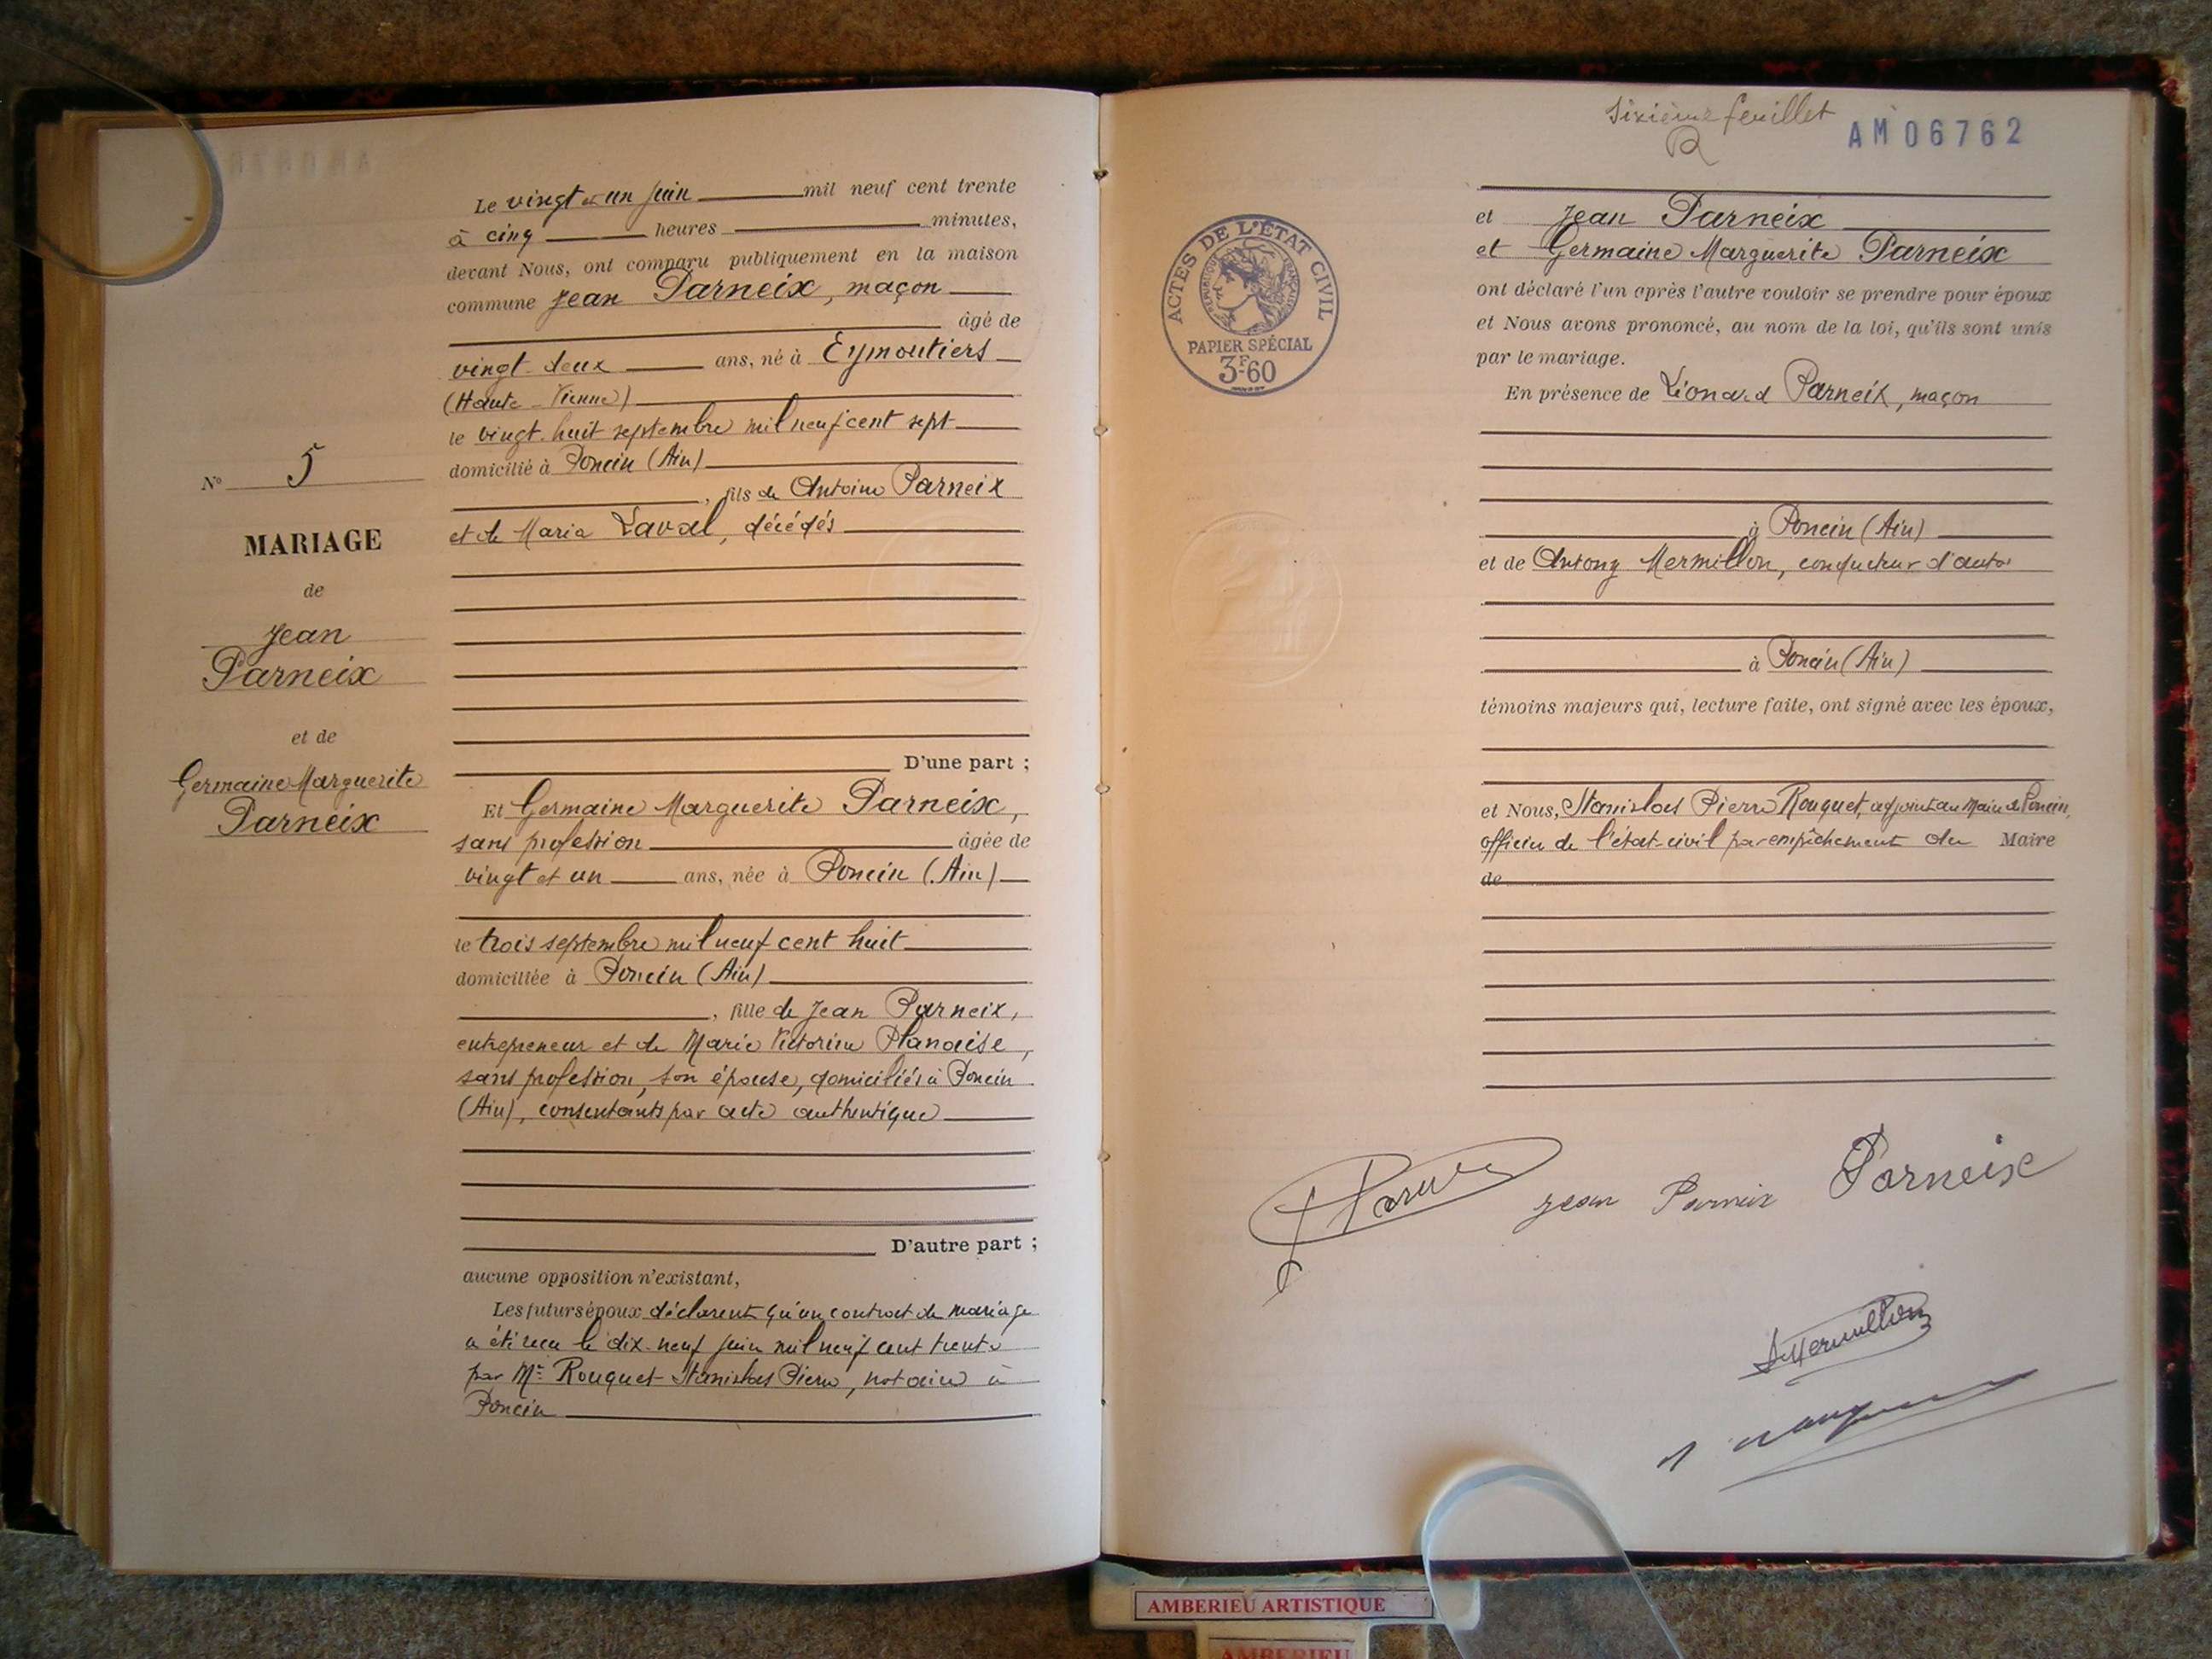 Le vingt et un juin mil neuf cent trente
à cinq heures minutes,
devant Nous, ont comparu publiquement en la maison
commune Jean Parneix, maçon
âgé de
vingt-deux ans, né à Eymoutiers
(Haute-Vienne)
le vingt-huit septembre mil neuf cent sept
domicilié à Poncin (Ain)
, fils de Antoine Parneix
et de Maria Laval, décédés
N° 5
MARIAGE
de
Jean
Parneix
et de
Germaine Marguerite
Parneix
D'une part ;
Et Germaine Marguerite Parneix,
sans profession âgée de
vingt et un ans, née à Poncin (Ain)
le trois septembre mil neuf cent huit
domiciliée à Poncin (Ain)
, fille de Jean Parneix,
entrepreneur et de Marie Victorine Planaise,
sans profession, son épouse, domiciliés à Poncin
(Ain), consentants par acte authentique
D'autre part ;
aucune opposition n'existant,
Les futurs époux déclarent qu'un contrat de mariage
a été reçu le dix-neuf juin mil neuf cent trente
par Me Rouquet Stanislas Pierre, notaire à
Poncin
Sixième feuillet
AM 06762
ACTES DE L'ÉTAT CIVIL
RÉPUBLIQUE FRANÇAISE
PAPIER SPÉCIAL
3F60
et Jean Parneix
et Germaine Marguerite Parneix
ont déclaré l'un après l'autre vouloir se prendre pour époux
et Nous avons prononcé, au nom de la loi, qu'ils sont unis
par le mariage.
En présence de Léonard Parneix, maçon
à Poncin (Ain)
et de Antony Mermillon, conducteur d'auto
à Poncin (Ain)
témoins majeurs qui, lecture faite, ont signé avec les époux,
et Nous, Stanislas Pierre Rouquet, adjoint au Maire de Poncin,
officier de l'état-civil par empêchement du Maire
de
Jean Parneix Parneix
AMermillon
AMBERIEU ARTISTIQUE
AMBERIEU